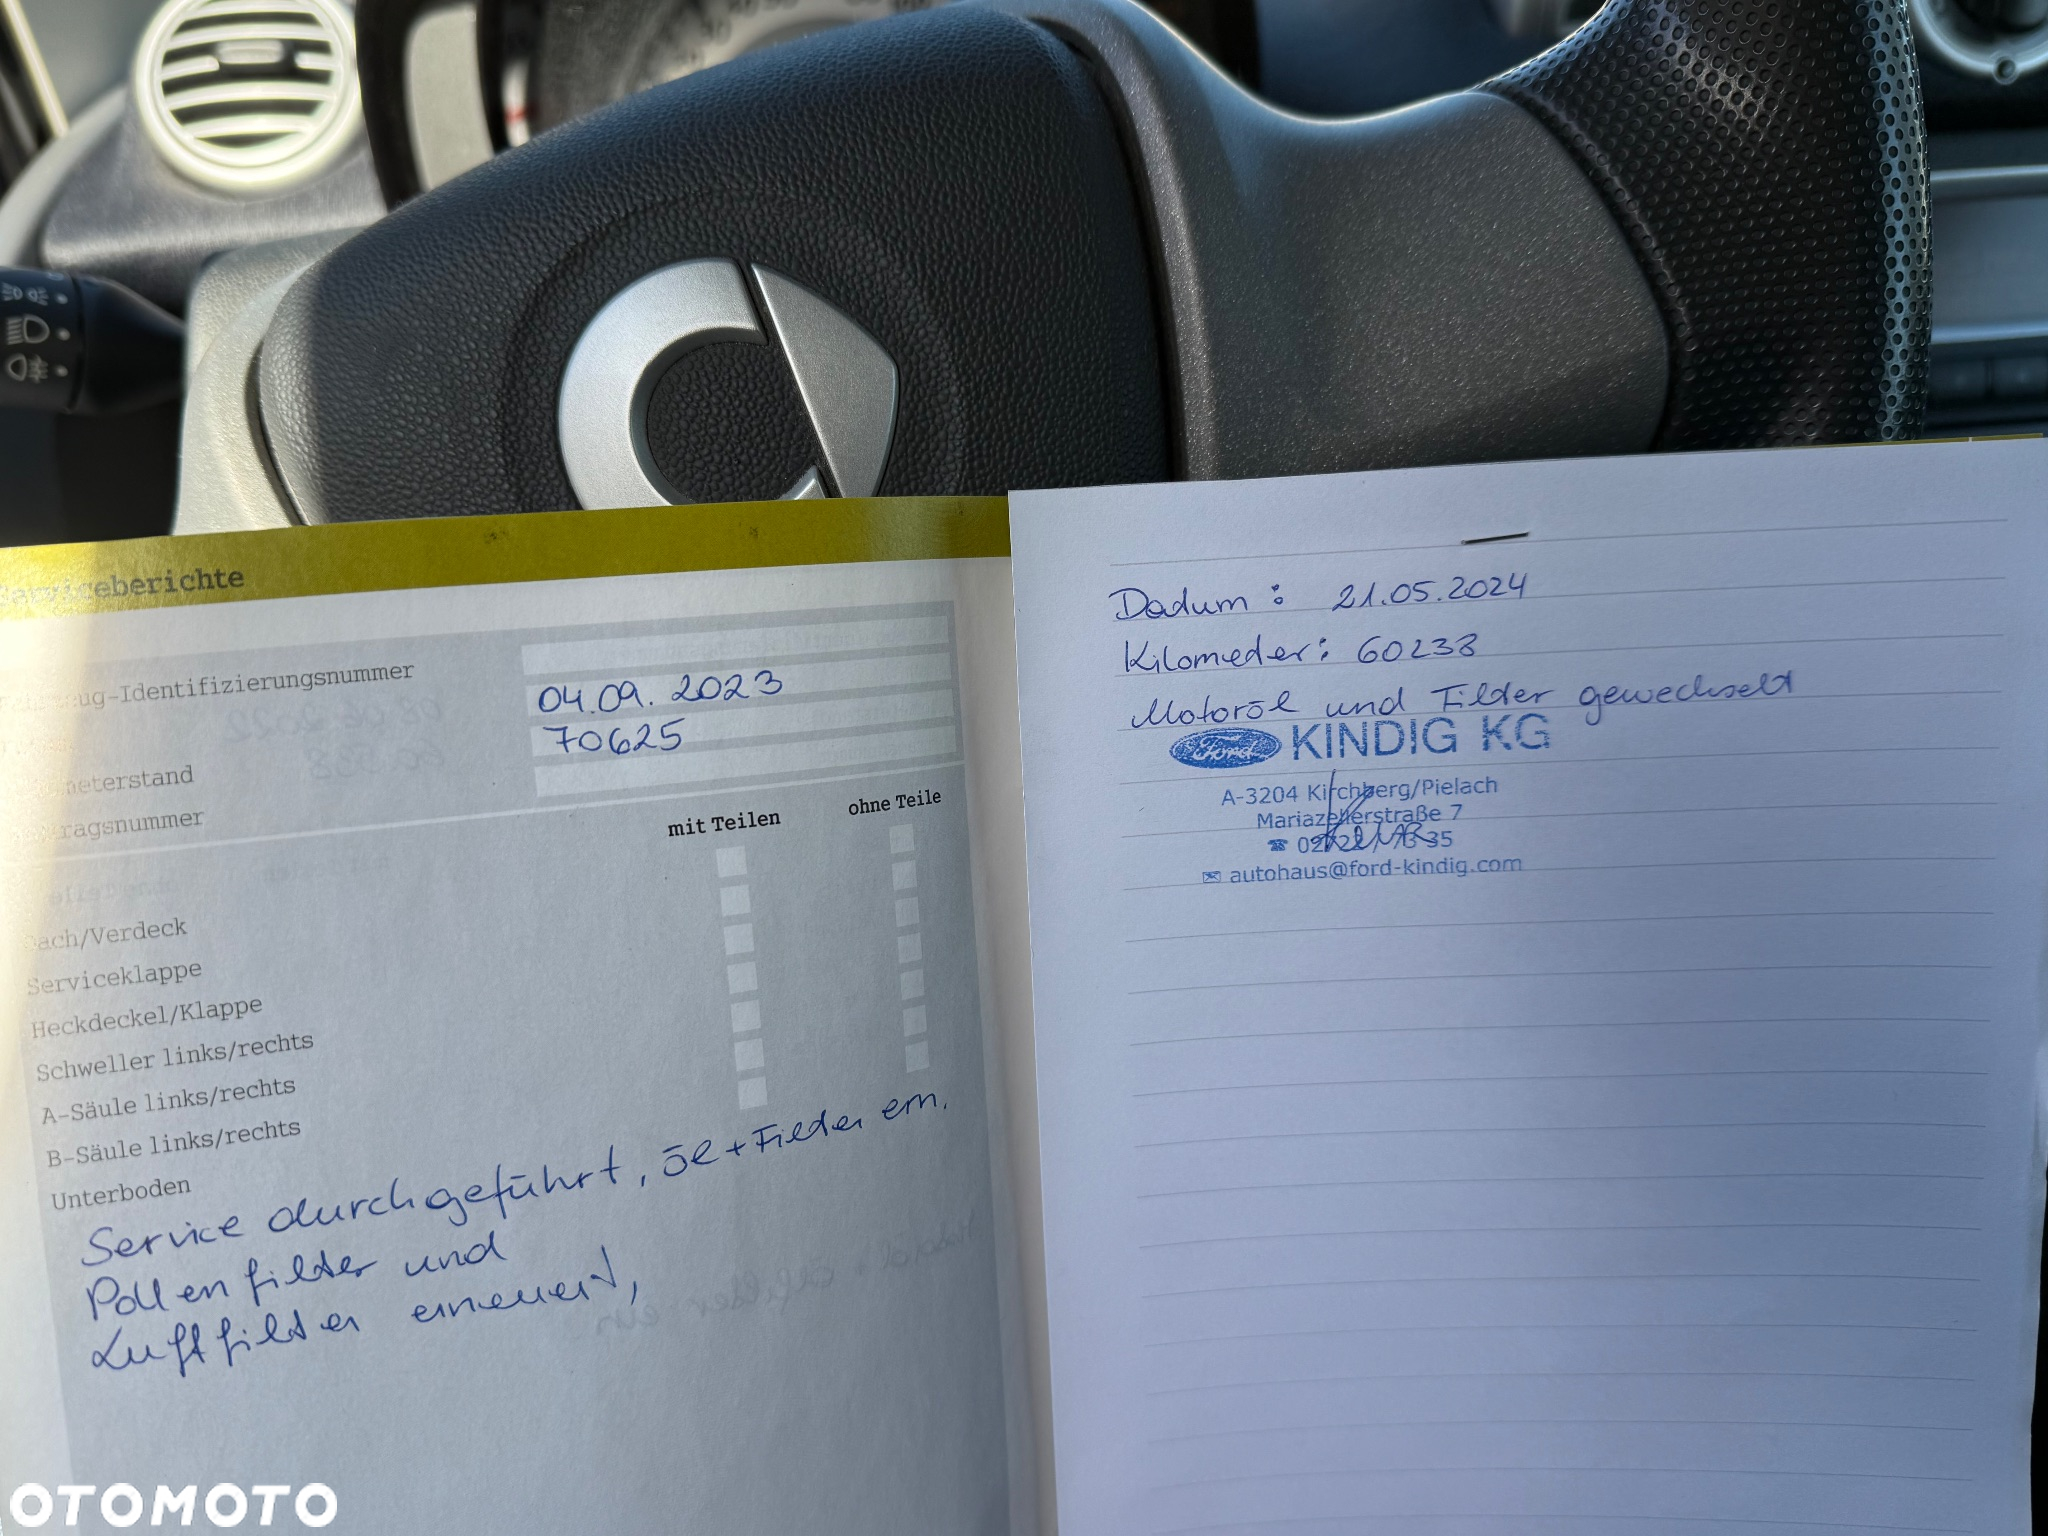 Serviceberichte
-Identifizierungsnummer
04.09.2023
meterstand
70625
ragsnummer
mit Teilen
ohne Teile
Dach/Verdeck
Serviceklappe
Heckdeckel/Klappe
Schweller links/rechts
A-Säule links/rechts
B-Säule links/rechts
Unterboden
Service durchgeführt, öl + Filder ern.
Pollenfilder und
Luftfilder erneuerd,
Dadum : 21.05.2024
Kilomeder: 60238
Motoröl und Filder gewechseld
Ford KINDIG KG
A-3204 Kirchberg/Pielach
Mariazellerstraße 7
autohaus@ford-kindig.com
OTOMOTO